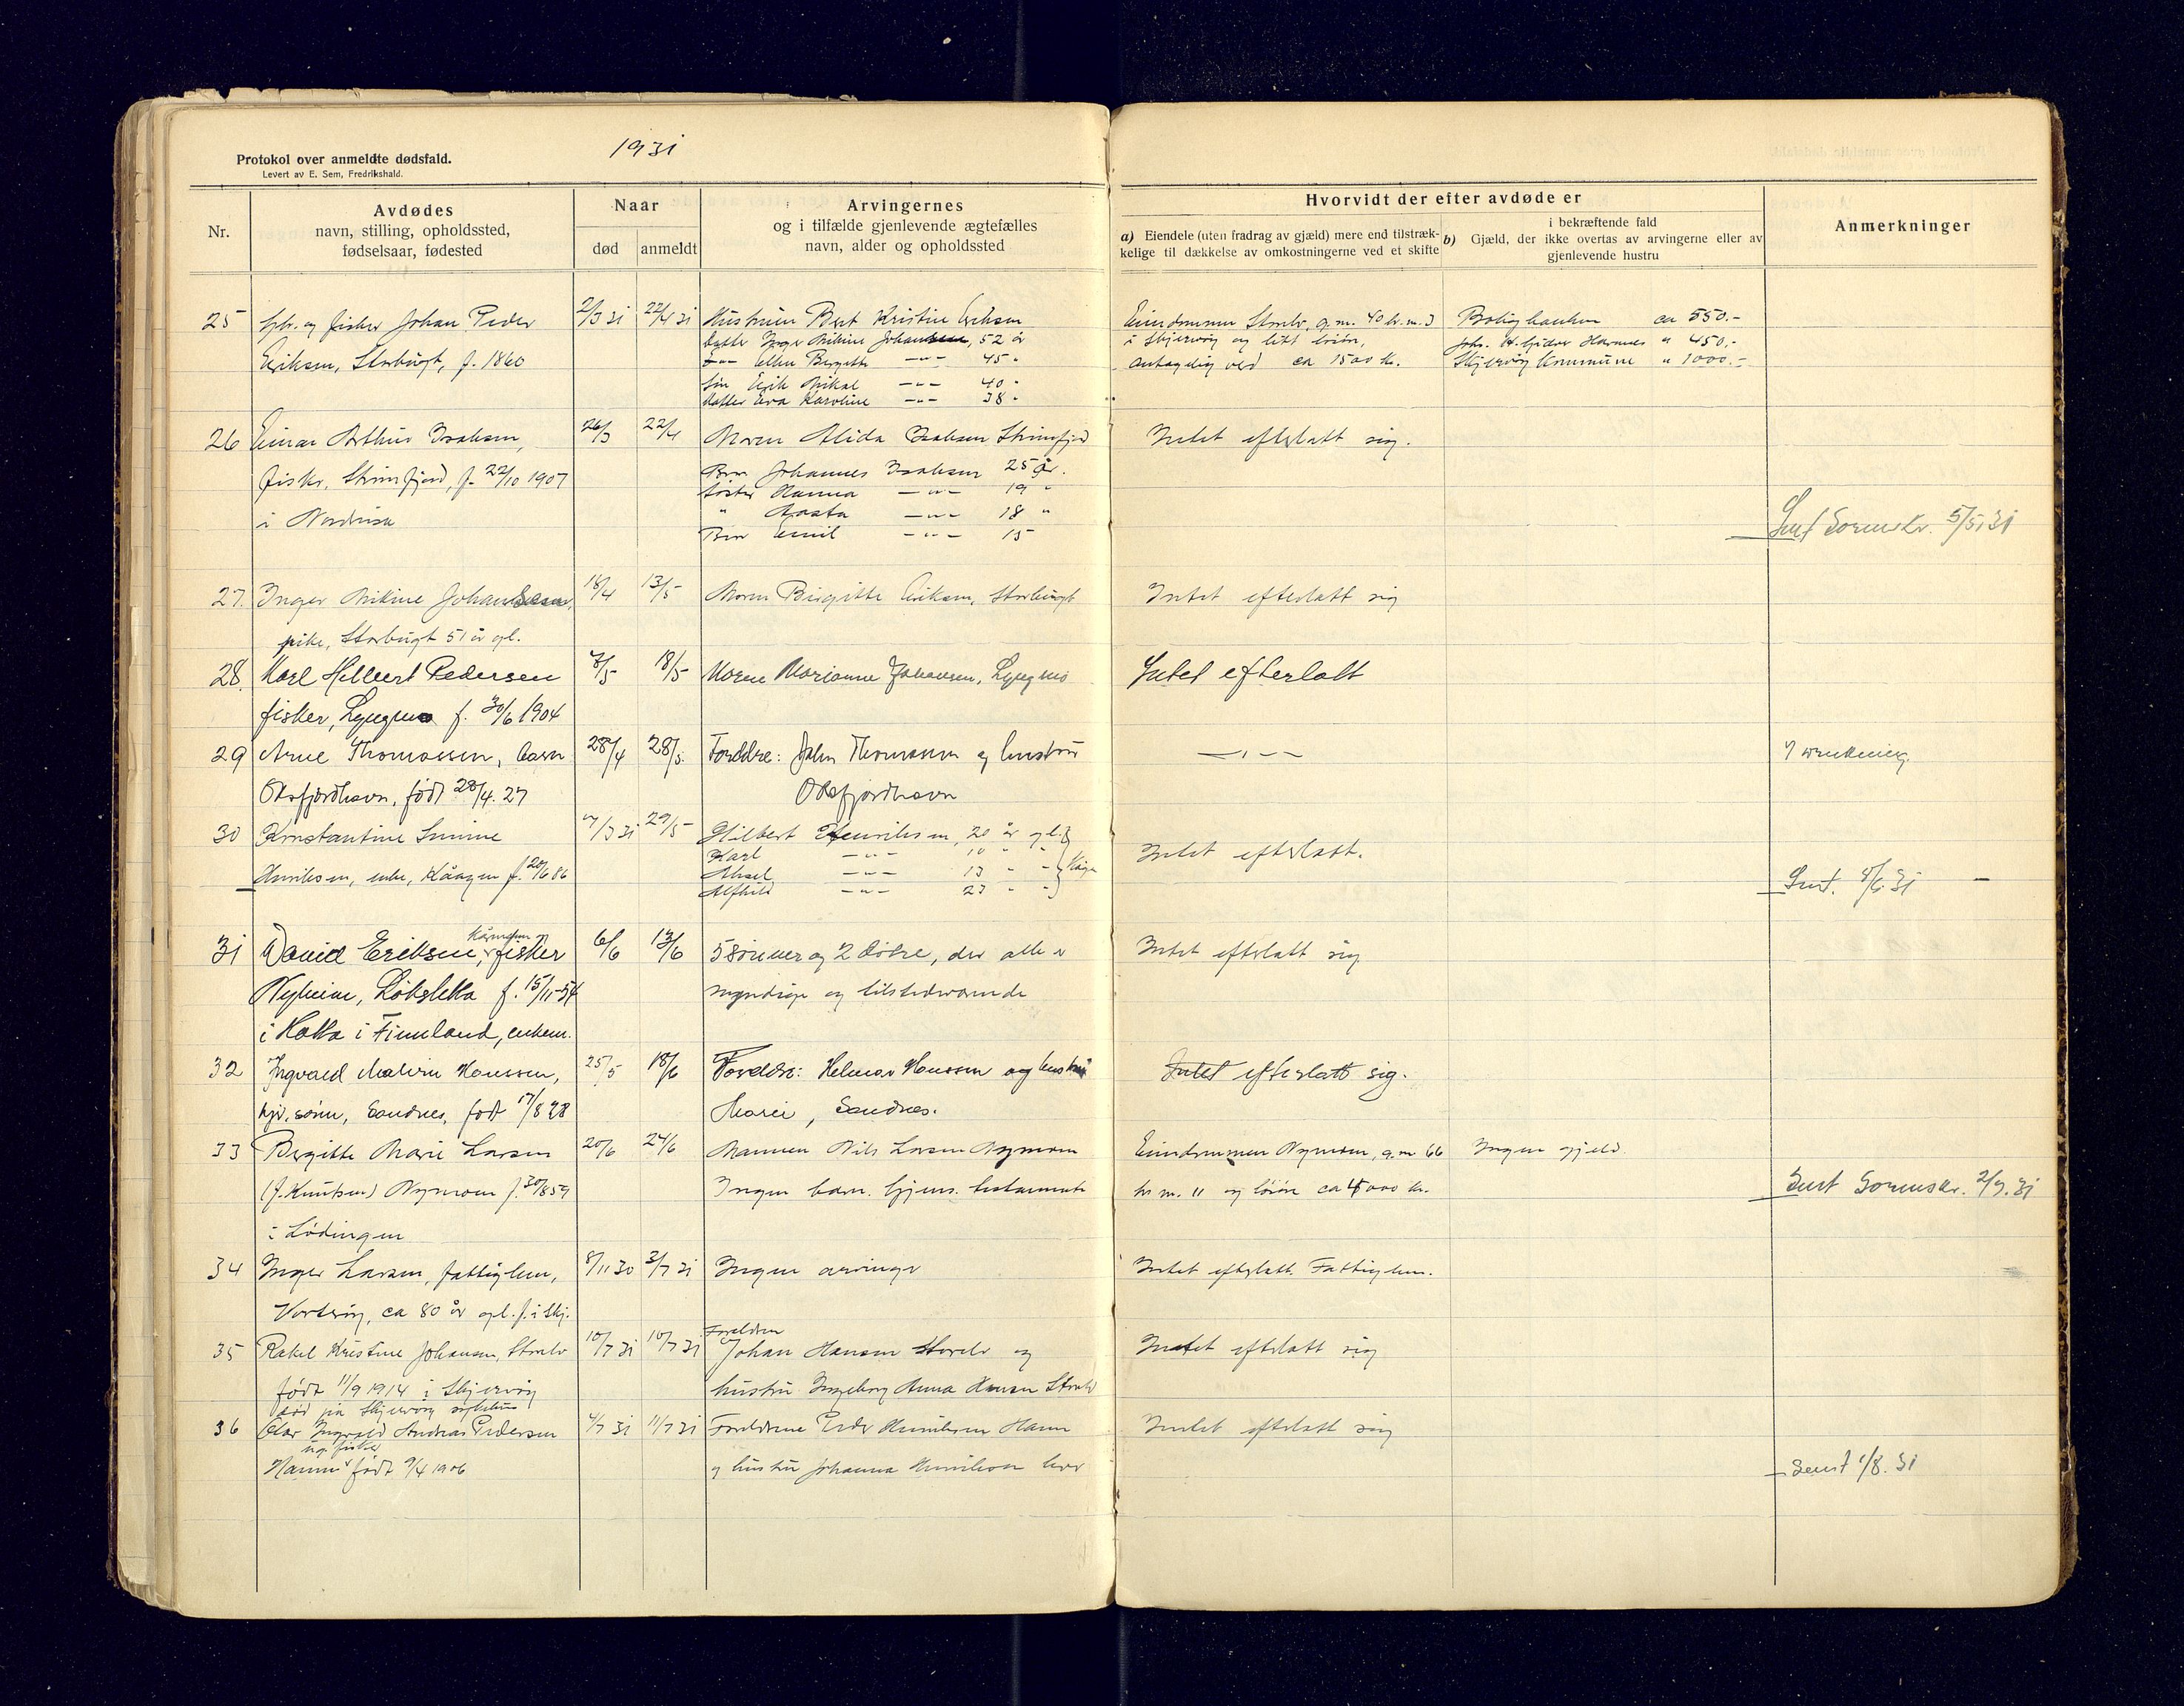 1931
Protokol over anmeldte dødsfald.
Levert av E. Sem, Fredrikshald.
Nr.
Avdødes
navn, stilling, opholdssted,
fødselsaar, fødested
Naar
død
anmeldt
Arvingernes
og i tilfælde gjenlevende ægtefælles
navn, alder og opholdssted
Hvorvidt der efter avdøde er
a) Eiendele (uten fradrag av gjæld) mere end tilstræk-
kelige til dækkelse av omkostningerne ved et skifte
i bekræftende fald
b) Gjæld, der ikke overtas av arvingerne eller av
gjenlevende hustru
Anmerkninger
25 Gbr. og fisker Johan Peder
Eriksen, Storbugt, f. 1860
2/3 31
22/4 31
Hustruen Berit Kristine Eriksen
datter Inger Mikine Johansen, 52 år
Ellen Bergitte -"- 45 "
søn Erik Mikal -"- 40 "
datter Eva Karoline -"- 38 "
Eiendommen Storelv, g.m. 40 br.m. 3
i Skjervøy og litt løsøre,
antagelig verd ca 1500 kr.
Boligbanken ca 550.-
Joh. H. Giæver Havnnes " 450.-
Skjervøy kommune " 1000.-
26 Einar Arthur Isaksen,
fisker, Straumfjord, f. 22/10 1907
i Nordreisa
26/3
22/4
Moren Alida Isaksen
Bror Johannes Isaksen 25 år.
søster Hanna -"- 19 "
" Aasta -"- 18 "
Bror Emil -"- 15
Intet efterlatt sig.
Sent Sorenskr. 5/5 31
27. Inger Mikine Johansen
pike, Storbugt 51 år gl.
18/4
13/5
Moren Birgitte Eriksen, Storbugt
Intet efterlatt sig
28. Karl Hilbert Pedersen
fisker, Lyngmo f. 30/6 1904
7/5
18/5
Moren Marianne Johansen, Lyngmo
Intet efterlatt
29 Arne Thomassen, barn
Oksfjordhavn, født 28/4. 27
28/4
28/5.
Foreldre: John Thomassen og hustru
Oksfjordhavn
-"-
/ drukning.
30 Konstantine
Henriksen, enke, Kåagen f. 20/6 86
29/5
Hilbert Henriksen, 20 år gl.
Karl -"-
Aksel -"- 13 "
Alfhild -"- 23 "
Intet efterlatt.
Sent. 8/6. 31
31 David Eriksen, fisker
Nyheim, Løkslette f. 15/11-54
i Finnland, enkem.
6/6
13/6
5 sønner og 2 døtre, der alle er
myndige og tilstedeværende
Intet efterlatt sig
32 Ingvald Malvin Hanssen,
sønn, Sandnes, født 17/8 28
25/5
18/6
Foreldre: Helmar Hanssen og hustru
Marie, Sandnes.
Intet efterlatt sig.
33 Bergitte Marie Larsen
(f. Knutsen) Nymoen f. 30/8 59
i Lødingen
20/6
24/6
Mannen Nils Larsen Nymoen
Ingen barn. Gjens. testamente
Eiendommen Nymoen, g.m 66
br m. 11 og løsøre ca 4000 kr.
Ingen gjeld.
Sent Sorenskr. 2/7. 31
34 Inger Larsen, fattiglem,
Vorterøy, ca 80 år gl. f. i Skj.
8/11 30
3/7 31
Ingen arvinger
Intet efterlatt. Fattiglem.
35 Rakel Kristine Johansen, Storelv
født 11/9 1914 i Skjervøy
død på Skjervøy sykehus
10/7 31
10/7 31
Foreldren
Johan Hansen Storelv og
hustru Ingeborg Anna Hansen Storelv
Intet efterlatt sig
36 Olav Ingvald Andreas Pedersen
ug. fisker
født 9/4 1906
4/7 31
11/7 31
Foreldrene Peder Henriksen
og hustru Johanna Henriksen
Intet efterlatt sig
Sent 1/8. 31